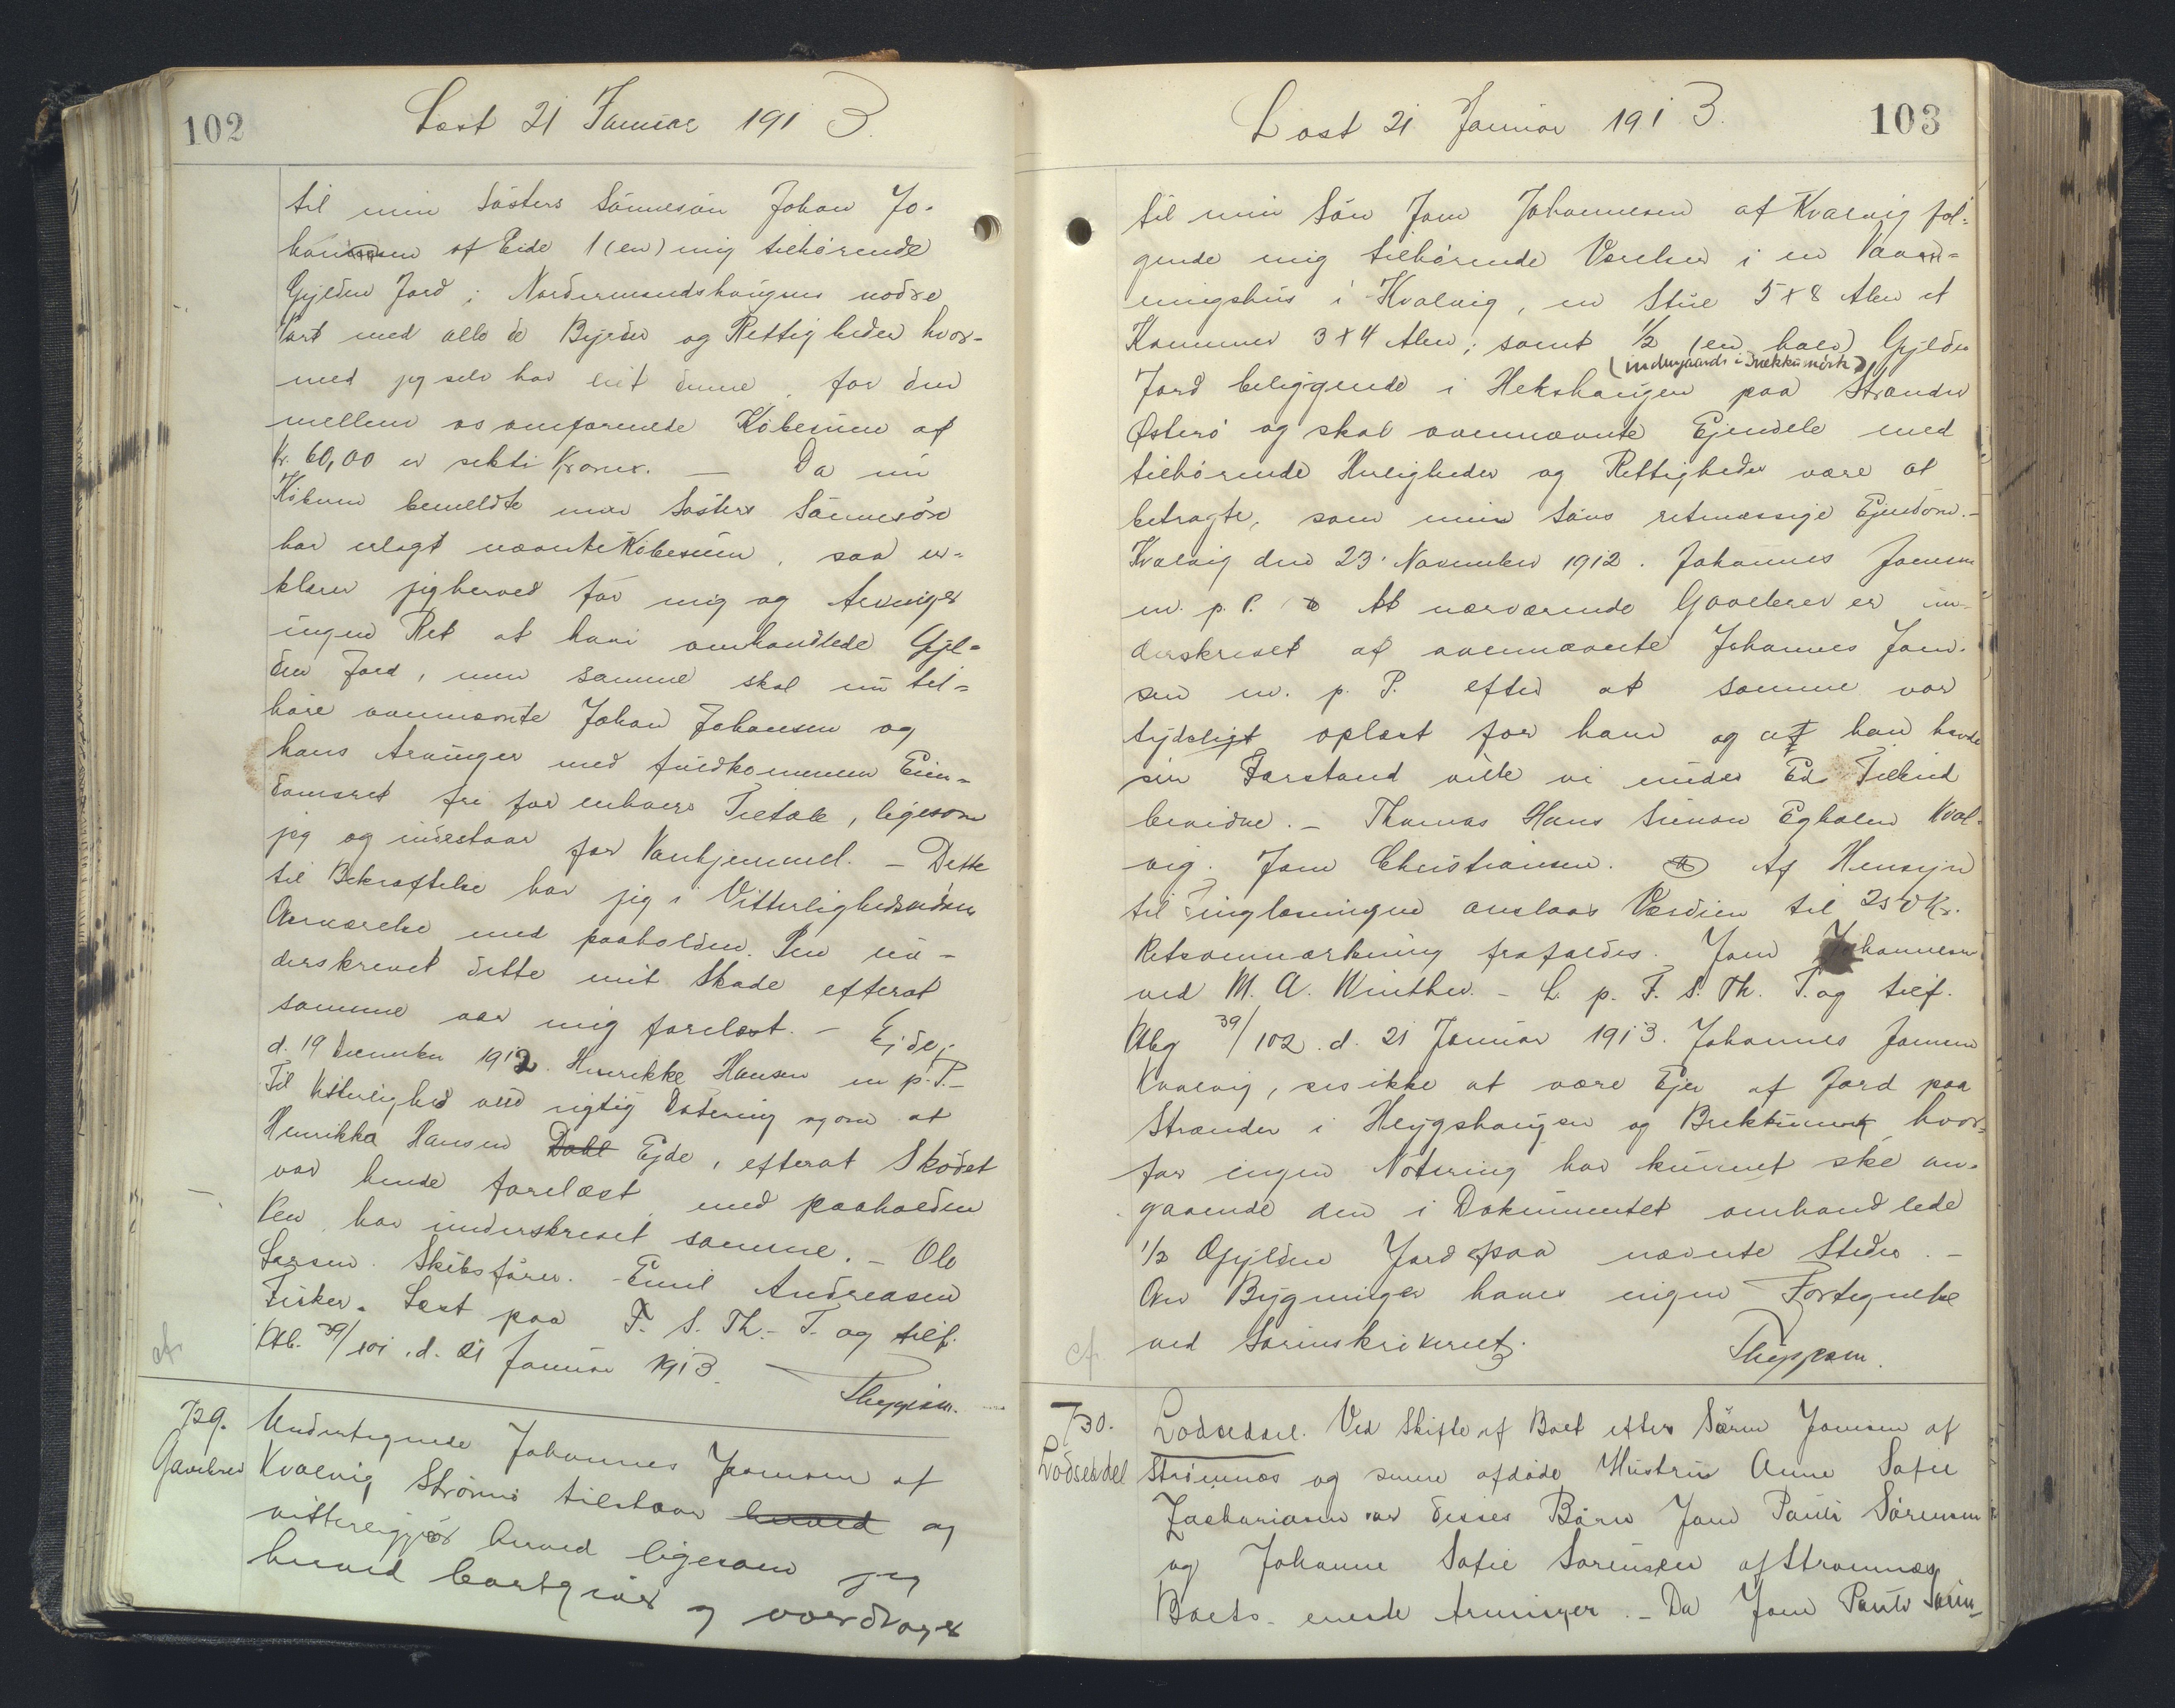 102
Læst 21 Januar 1913.
til min Søsters Sønnesøn Johan Jo-
hansen af Eide 1 (en) mig tilhørende
Gylden Jord i Nordermandshaugens nodre
Part med alle de Byrder og Rettigheder hvor-
med jeg selv har eiet denne, for den
mellem os omforenede Købesum af
Kr. 60,00 er seksti Kroner. — Da nu
Køberen bemeldte min Søsters Sønnesøn
har erlagt nævnte Købesum, saa er-
klærer jeg herved for mig og Arvinger
ingen Ret at have omhandlede Gyl-
den Jord, men samme skal nu til-
høre ovennævnte Johan Johansen og
hans Arvinger med fuldkommen Eien-
domsret fri for enhvers Tiltale, ligesom
jeg og indestaar for Vanhjemmel. — Dette
til Bekræftelse har jeg i Vitterlighedsvidners
Overværelse med paaholden Pen un-
derskrevet dette mit Skøde efterat
samme var mig forelæst. — Ejde,
d. 19 December 1912. Henrikke Hansen m. p. P. —
Til Vitterlighed om rigtig Datering og om at
Henrikka Hansen Dahl Ejde, efterat Skødet
var hende forelæst med paaholden
Pen har underskrevet samme. — Ole
Larsen. Skibsfører. Emil Andreasen
Fisker. Læst paa F. S. Th. T. og tilf.
Atb. 39/101. d. 21 Januar 1913.
cf.
729.
Gavebrev
Undertegnede Johannes Joensen af
Kvalvig Strømø tilstaar herved og
vitterliggjør herved ligesom jeg
herved bortgiver og overdrager
103
Læst 21 Januar 1913.
til min Søn Joen Johannesen af Kvalvig føl-
gende mig tilhørende Værelser i en Vaan-
ingshus i Kvalvig, en Stue 5 x 8 Alen et
Kammer 3 x 4 Alen; samt 1/2 (en halv) Gylden
Jord beliggende i Hekshaugen paa Strænder
Østerø og skal ovennævnte Ejendele med
tilhørende Herligheder og Rettigheder være at
betragte, som min Søns retmæssige Ejendom. —
Kvalvig den 23. November 1912. Johannes Joensen
m. p. P. At nærværende Gavebrev er un-
derskrevet af ovennævnte Johannes Joen-
sen m. p. P. efter at samme var
tydeligt oplæst for ham og at han havde
sin Forstand ville vi under Eds Tilbud
bevidne. — Thomas Hans Simon Egholm Kval-
vig. Joen Christiansen. Af Hensyn
til Tinglæsningen anslaas Værdien til 250 Kr.
Retsanmærkning frafaldes. Joen Johannesen
ved M. A. Winther. — L. p. F. S. Th. T. og tilf.
Atbg 39/102. d. 21 Januar 1913. Johannes Joensen
Kvalvig, ses ikke at være Ejer af Jord paa
Strænder i Heygshaugen og Brekkumørk hvor-
for ingen Notering har kunnet ske an-
gaaende den i Dokumentet omhandlede
1/2 Gylden Jord paa nævnte Steder. —
Over Bygninger haves ingen Fortegnelse
ved Sorenskriveriet.
cf.
730.
Lodseddel
Lodseddel. Ved Skifte af Boet efter Søren Joensen af
Strømnæs og senere afdøde Hustru Anne Sofie
Zachariasen var disses Børn Joen Pauli Sørensen
og Johanne Sofie Sørensen af Strømnæs
Boets eneste Arvinger. — Da Joen Pauli Søren-